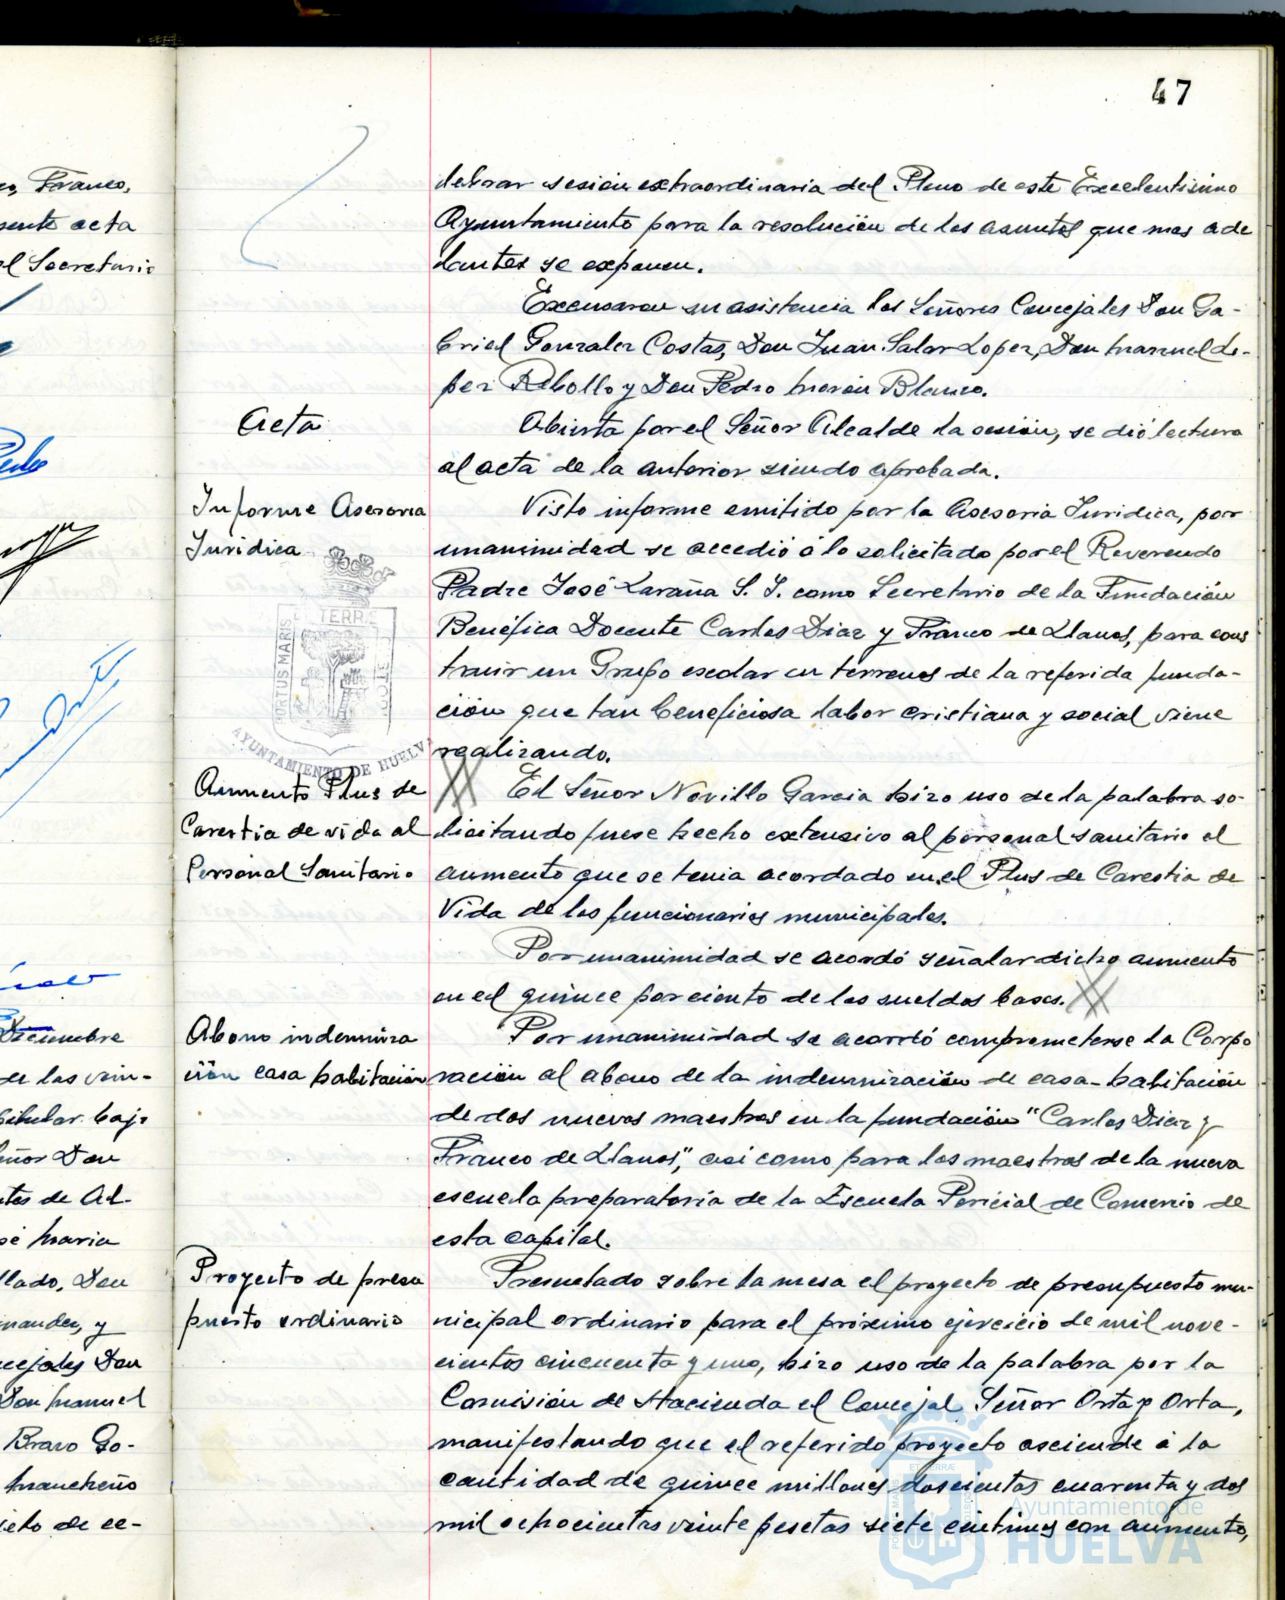 47
Franco,
acta
el Secretario
Diciembre
de las vein-
bajo
Don
de Al-
Maria
llado, Don
y
Don
Don Manuel
Bravo Go-
Mancheño
de ce-
lebrar sesión extraordinaria del Pleno de este Excelentisimo
Ayuntamiento para la resolución de los asuntos que mas ade
lantes se exponen.
Excusaron su asistencia los Señores Concejales Don Ga-
briel Gonzalez Costas, Don Juan Salas Lopez, Don Manuel Lo-
pez Rebollo y Don Pedro Morón Blanco.
Acta
Abierta por el Señor Alcalde la sesión, se dió lectura
al acta de la anterior siendo aprobada.
Informe Asesoria
Juridica
Visto informe emitido por la Asesoria Juridica, por
unanimidad se accedió á lo solicitado por el Reverendo
Padre José Laraña S. J. como Secretario de la Fundación
Benéfica Docente Carlos Diaz y Franco de Llanos, para cons
truir un Grupo escolar en terrenos de la referida funda-
ción que tan beneficiosa labor cristiana y social viene
realizando.
ET TERRÆ
PORTUS MARIS
CUSTODIÆ
AYUNTAMIENTO DE HUELVA
Aumento Plus de
Carestia de vida al
Personal Sanitario
El Señor Novillo Garcia hizo uso de la palabra so-
licitando fuese hecho extensivo al personal sanitario el
aumento que se tenia acordado en el Plus de Carestia de
Vida de los funcionarios municipales.
Por unanimidad se acordó señalar dicho aumento
en el quince por ciento de los sueldos bases.
Abono indemniza
ción casa habitación
Por unanimidad se acordó comprometerse la Corpo
ración al abono de la indemnización de casa-habitación
de dos nuevos maestros en la fundación "Carlos Diaz y
Franco de Llanos", asi como para los maestros de la nueva
escuela preparatoria de la Escuela Pericial de Comercio de
esta capital.
Proyecto de presu
puesto ordinario
Presentado sobre la mesa el proyecto de presupuesto mu-
nicipal ordinario para el próximo ejercicio de mil nove-
cientos cincuenta y uno, hizo uso de la palabra por la
Comisión de Hacienda el Concejal Señor Orta y Orta,
manifestando que el referido proyecto asciende á la
cantidad de quince millones doscientas cuarenta y dos
mil ochocientas veinte pesetas siete centimos con aumento,
Ayuntamiento de
HUELVA